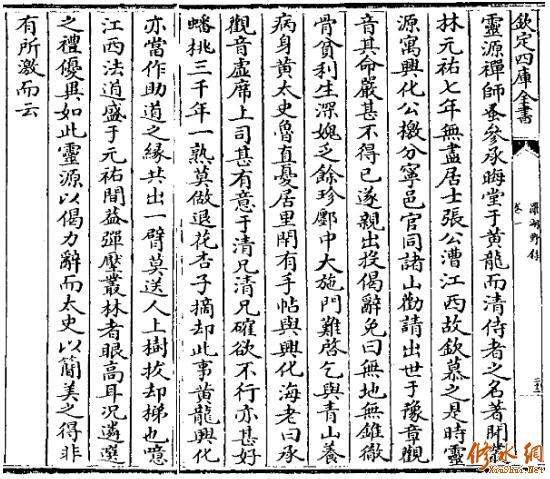 欽定四庫全書
羅湖野錄
卷一
靈源禪師蚤參承晦堂于黃龍而清侍者之名著聞叢
林元祐七年無盡居士張公漕江西故欽慕之是時靈
源寓興化公檄分寧邑官同諸山勸請出世于豫章觀
音其命嚴甚不得已遂親出投偈辭免曰無地無錐徹
骨貧利生深媿乏餘珍鄽中大施門難啓乞與青山養
病身黃太史魯直憂居里閈有手帖與興化海老曰承
觀音虛席上司甚有意于清兄清兄確欲不行亦甚好
蟠桃三千年一熟莫做退花杏子摘却此事黃龍興化
亦當作助道之緣共出一臂莫送人上樹拔却梯也噫
江西法道盛于元祐間葢彈壓叢林者眼高耳況遴選
之禮優異如此靈源以偈力辭而太史以簡美之得非
有所激而云
修水网
XiuShui.Net